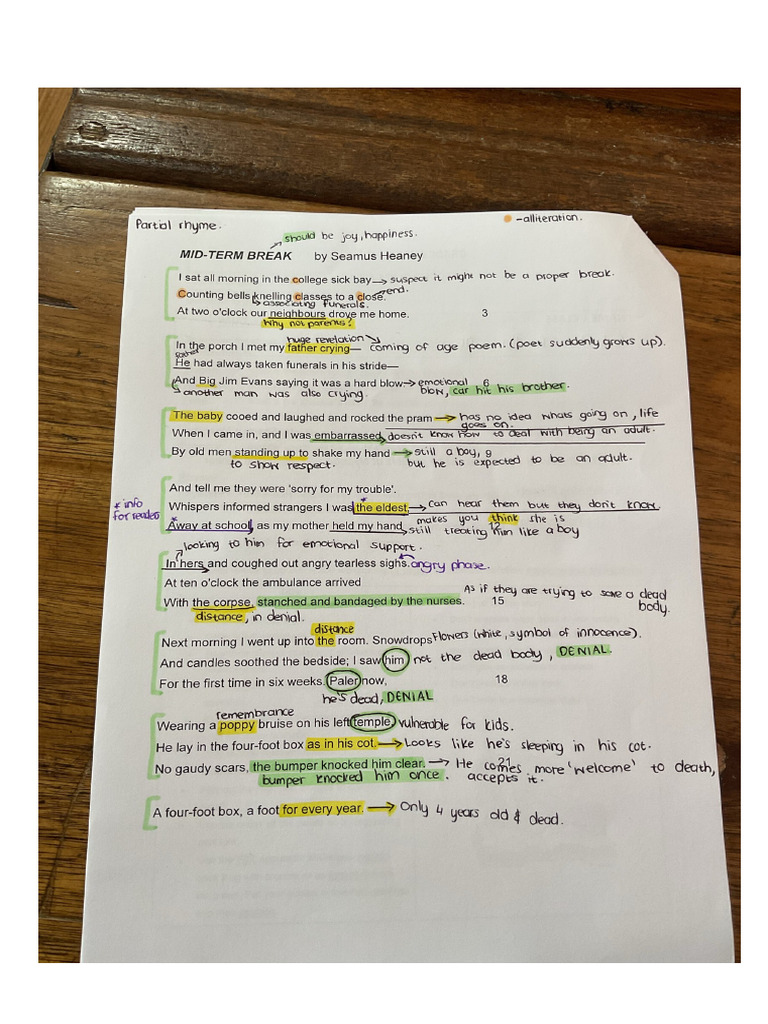 Partial rhyme.
-alliteration.
should be joy, happiness.
MID-TERM BREAK by Seamus Heaney
I sat all morning in the college sick bay → suspect it might not be a proper break.
end.
Counting bells knelling classes to a close.
associating funerals.
At two o'clock our neighbours drove me home. 3
Why not parents?
huge revelation
In the porch I met my father crying— coming of age poem. (poet suddenly grows up).
father
He had always taken funerals in his stride—
And Big Jim Evans saying it was a hard blow → emotional 6
another man was also crying. blow, car hit his brother.
The baby cooed and laughed and rocked the pram → has no idea whats going on, life
goes on.
When I came in, and I was embarrassed doesn't know how to deal with being an adult.
By old men standing up to shake my hand → still a boy, 9
to show respect. but he is expected to be an adult.
And tell me they were 'sorry for my trouble'.
* info
for reader
Whispers informed strangers I was the eldest, → can hear them but they don't know
makes you think she is
*
Away at school, as my mother held my hand 12
still treating him like a boy
looking to him for emotional support.
In hers and coughed out angry tearless sighs. angry phase.
At ten o'clock the ambulance arrived
As if they are trying to save a dead
body.
With the corpse, stanched and bandaged by the nurses. 15
distance, in denial.
distance
Next morning I went up into the room. Snowdrops Flowers (white, symbol of innocence).
And candles soothed the bedside; I saw him not the dead body, DENIAL.
For the first time in six weeks. Paler now, 18
he's dead, DENIAL
remembrance
Wearing a poppy bruise on his left temple, vulnerable for kids.
He lay in the four-foot box as in his cot. → Looks like he's sleeping in his cot.
21
No gaudy scars, the bumper knocked him clear. → He comes more 'welcome' to death,
bumper knocked him once. accepts it.
A four-foot box, a foot for every year. → Only 4 years old & dead.